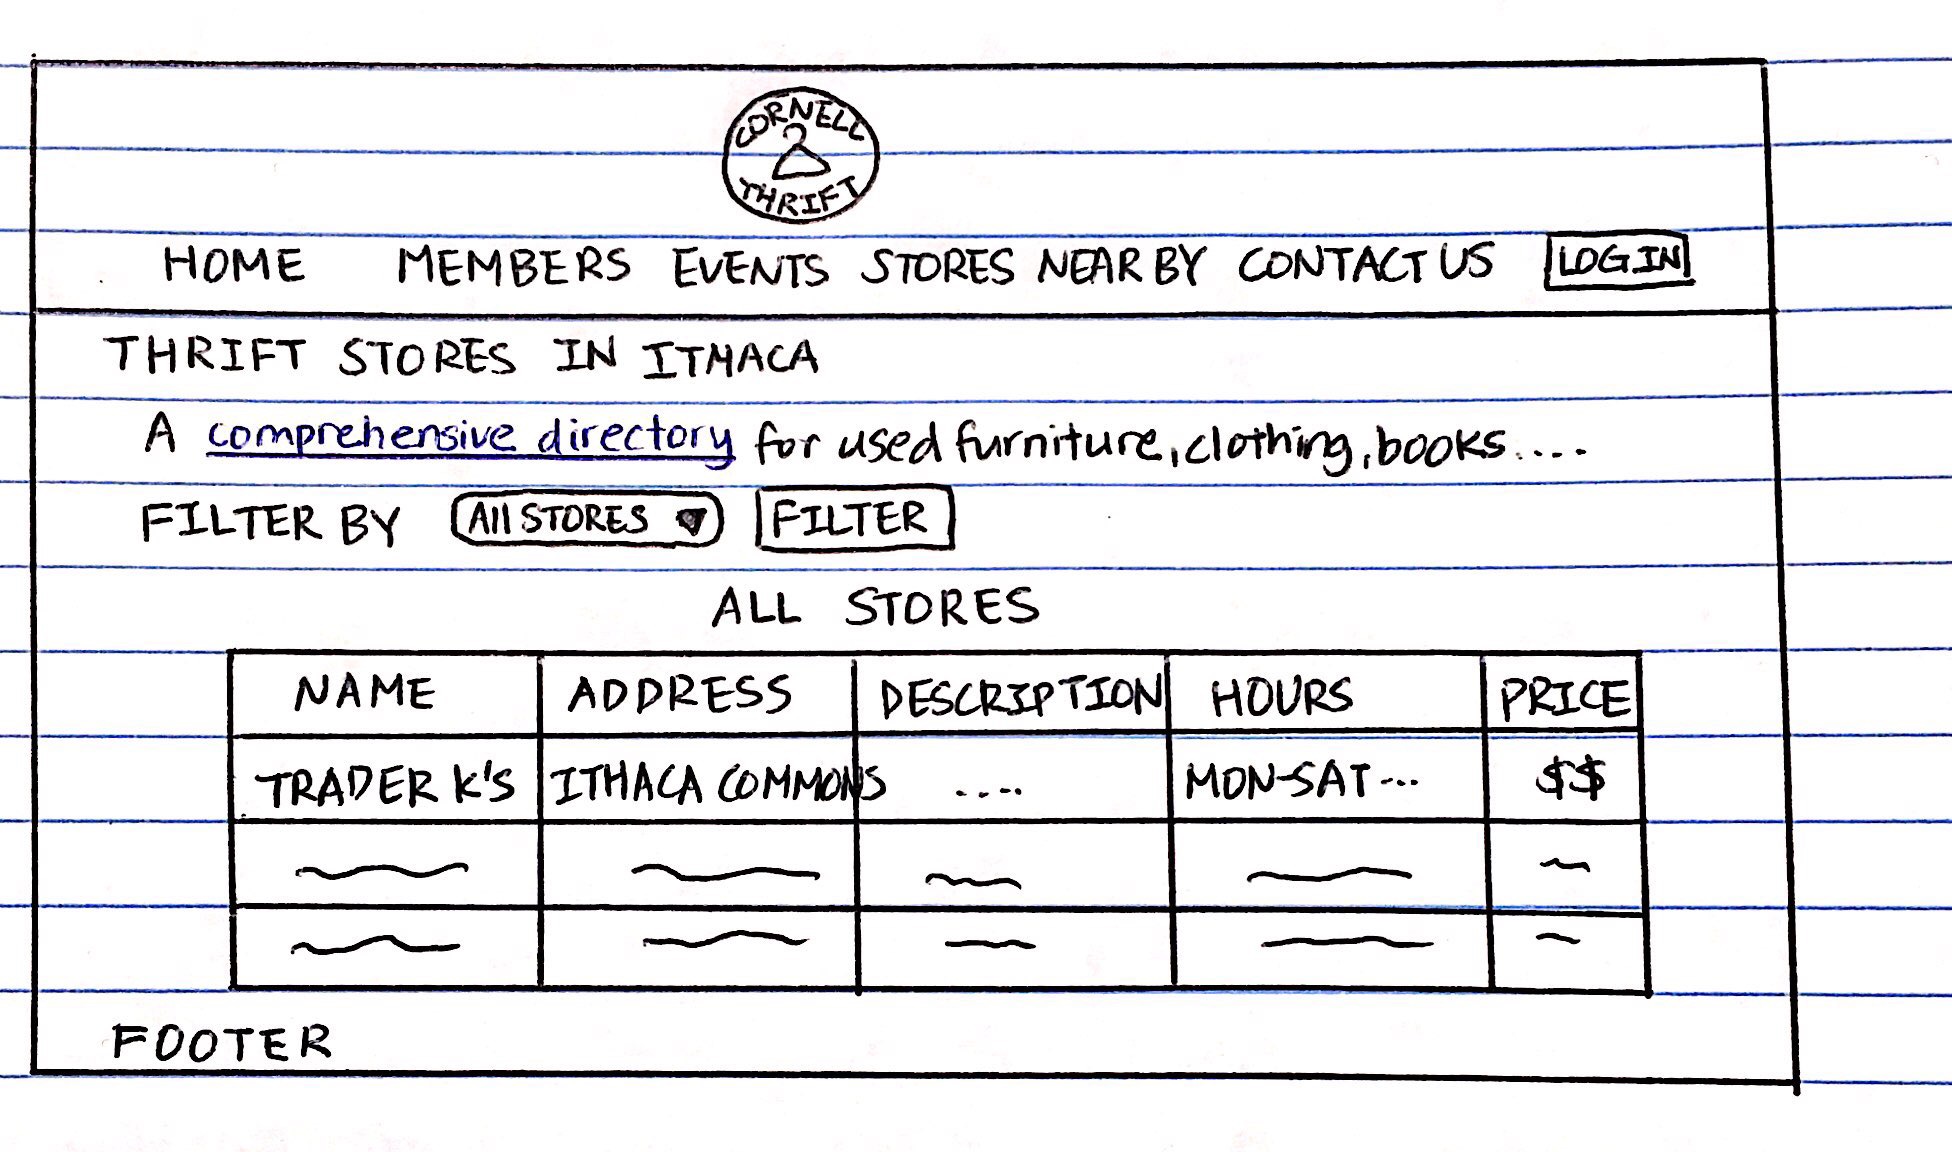 CORNELL
THRIFT
HOME MEMBERS EVENTS STORES NEARBY CONTACT US LOG IN
THRIFT STORES IN ITHACA
A comprehensive directory for used furniture, clothing, books....
FILTER BY All STORES FILTER
ALL STORES
NAME ADDRESS DESCRIPTION HOURS PRICE
TRADER K'S ITHACA COMMONS .... MON-SAT... $$
FOOTER